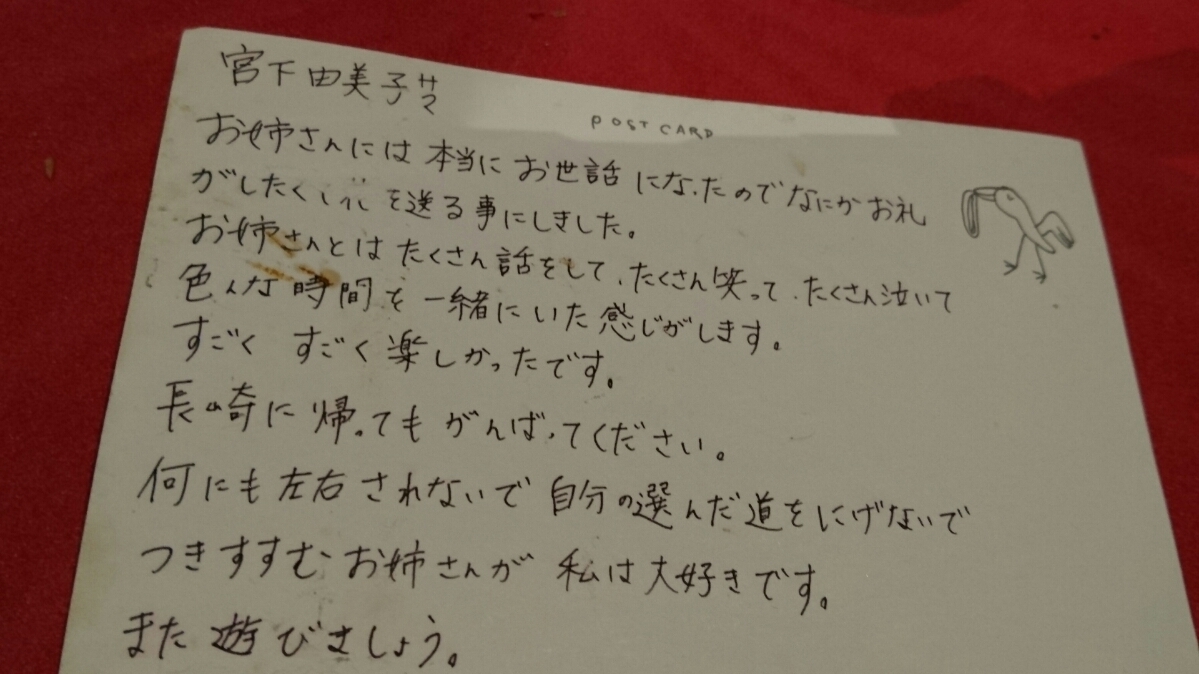 宮下由美子サマ
POST CARD
お姉さんには本当にお世話になったのでなにかお礼
がしたく を送る事にしきました。
お姉さんとはたくさん話をして、たくさん笑って、たくさん泣いて
色んな時間を一緒にいた感じがします。
すごく すごく楽しかったです。
長崎に帰ってもがんばってください。
何にも左右されないで自分の選んだ道をにげないで
つきすすむお姉さんが 私は大好きです。
また遊びましょう。